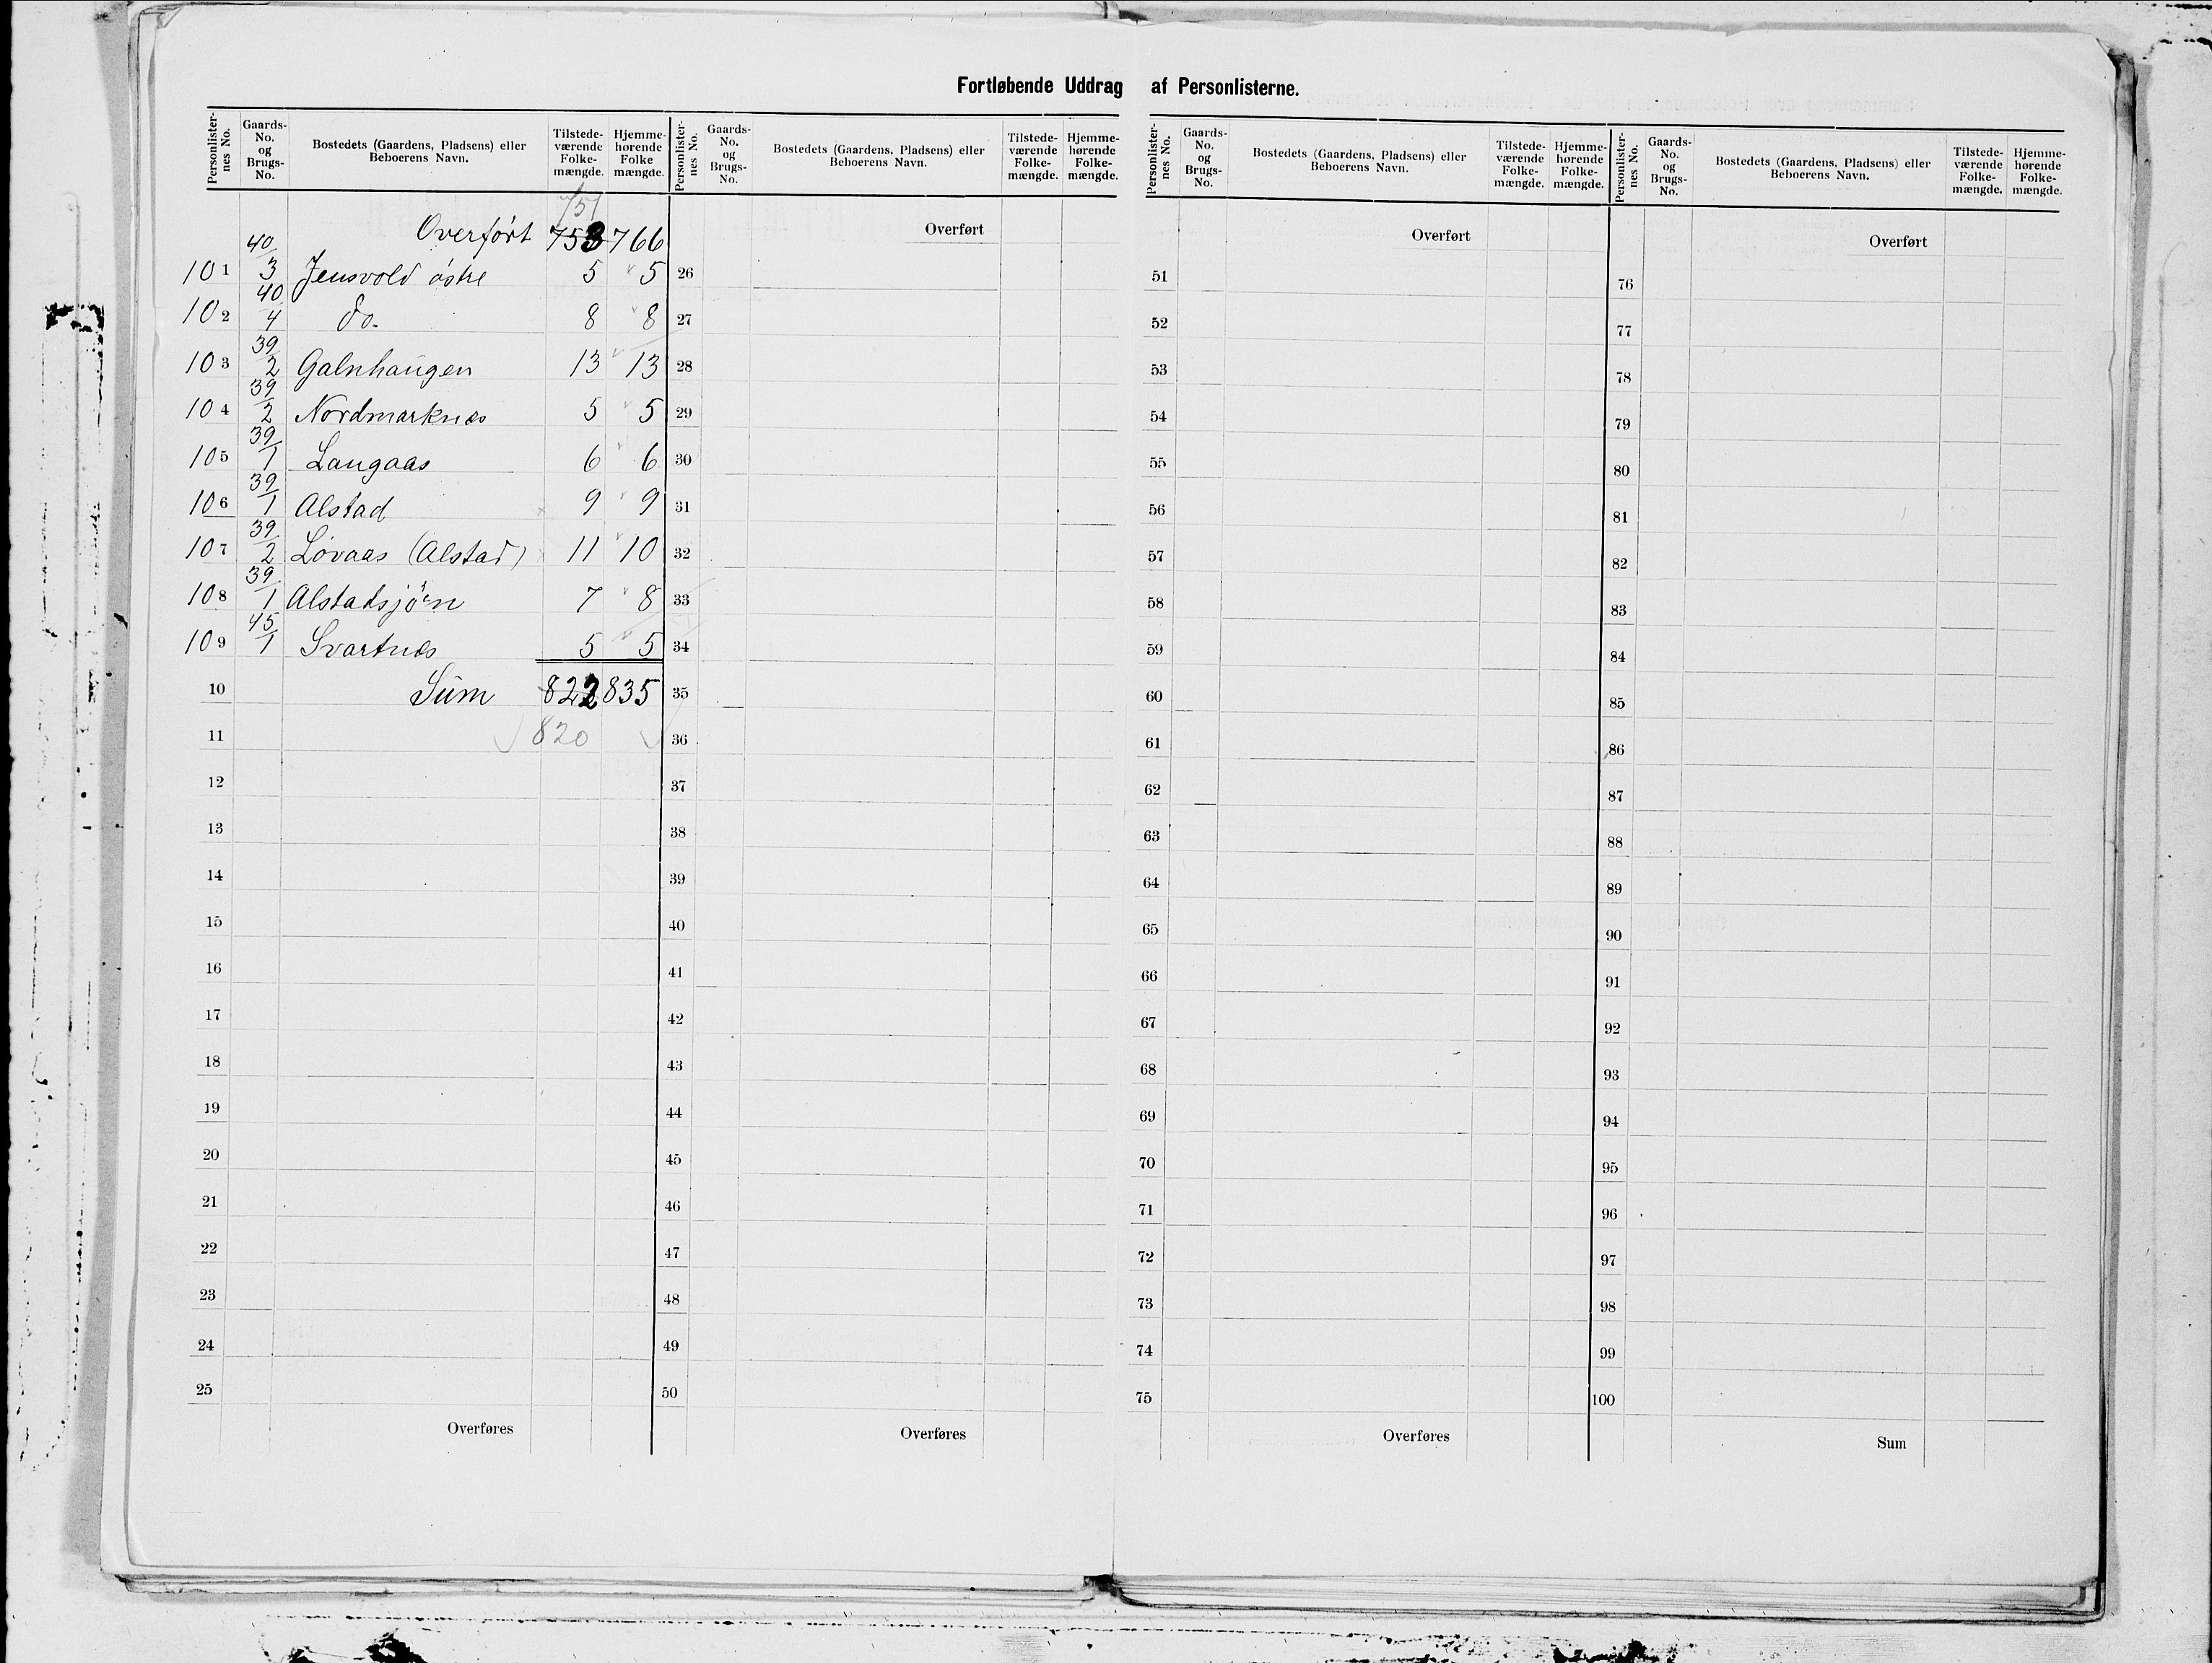 Fortløbende Uddrag af Personlisterne.
Personlister-nes No. Gaards-No. og Brugs-No. Bostedets (Gaardens, Pladsens) eller Beboerens Navn. Tilstede-værende Folke-mængde. Hjemme-hørende Folke mængde.
751
Overført 753 766
101 40/3 Jensvold østre 5 5
102 40/4 do. 8 8
103 39/2 Galnhaugen 13 13
104 39/2 Nordmarknæs 5 5
105 39/1 Langaas 6 6
106 39/1 Alstad 9 9
107 39/2 Løvaas (Alstad) 11 10
108 39/1 Alstadsjøen 7 8
109 45/1 Svartnæs 5 5
10 Sum 822 835
11 820
12
13
14
15
16
17
18
19
20
21
22
23
24
25
Overføres
Personlister-nes No. Gaards-No. og Brugs-No. Bostedets (Gaardens, Pladsens) eller Beboerens Navn. Tilstede-værende Folke-mængde. Hjemme-hørende Folke-mængde.
Overført
26
27
28
29
30
31
32
33
34
35
36
37
38
39
40
41
42
43
44
45
46
47
48
49
50
Overføres
Personlister-nes No. Gaards-No. og Brugs-No. Bostedets (Gaardens, Pladsens) eller Beboerens Navn. Tilstede-værende Folke-mængde. Hjemme-hørende Folke-mængde.
Overført
51
52
53
54
55
56
57
58
59
60
61
62
63
64
65
66
67
68
69
70
71
72
73
74
75
Overføres
Personlister-nes No. Gaards-No. og Brugs-No. Bostedets (Gaardens, Pladsens) eller Beboerens Navn. Tilstede-værende Folke-mængde. Hjemme-hørende Folke-mængde.
Overført
76
77
78
79
80
81
82
83
84
85
86
87
88
89
90
91
92
93
94
95
96
97
98
99
100
Sum